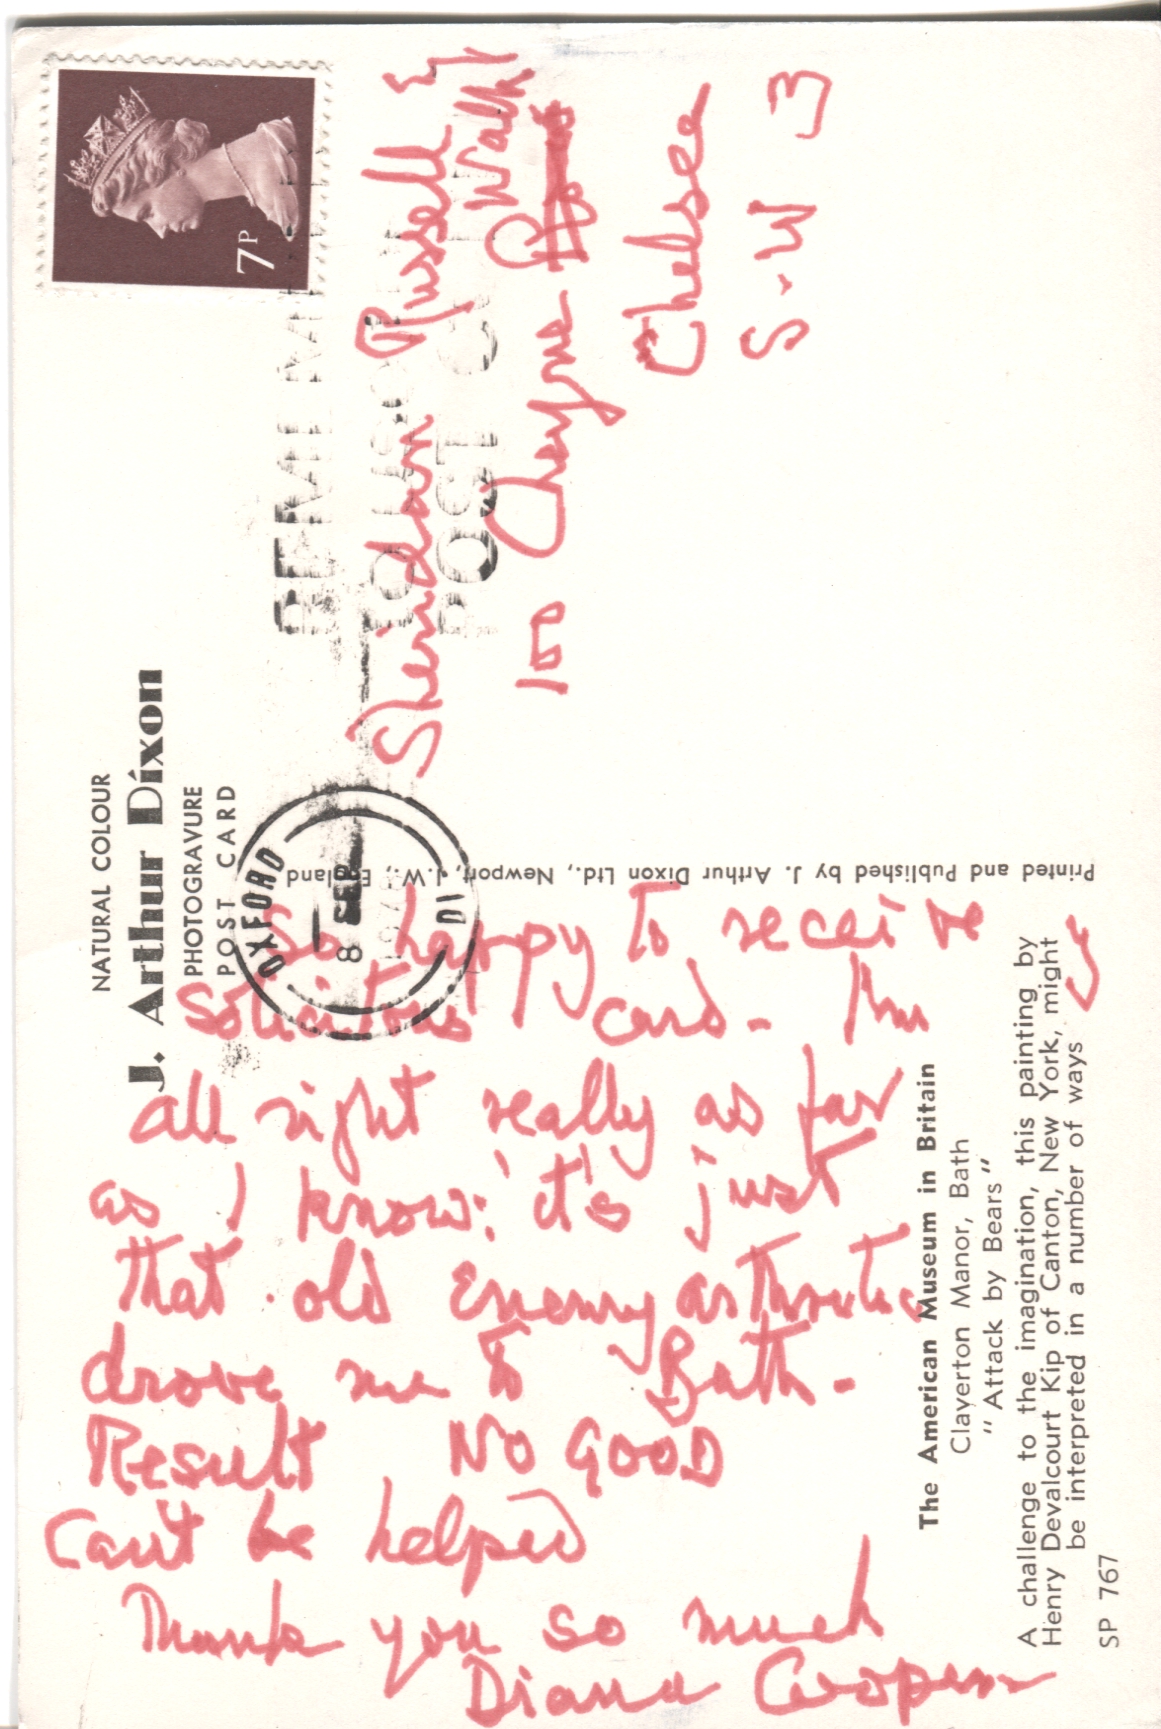 NATURAL COLOUR
J. Arthur Dixon
PHOTOGRAVURE
POST CARD
7P
OXFORD
8 SEP
POST
Sheridan Russell Esq
Walk
100 Cheyne
Chelsea
S.W 3
Printed and Published by J. Arthur Dixon Ltd., Newport, I.W., England
So happy to receive
solicitous card - I'm
all right really as far
as I know: it's just
that old Enemy arthritic
drove me to Bath -
Result NO GOOD
Can't be helped
Thank you so much
Diana Cooper
The American Museum in Britain
Clayerton Manor, Bath
" Attack by Bears "
A challenge to the imagination, this painting by
Henry Devalcourt Kip of Canton, New York, might
be interpreted in a number of ways
SP 767